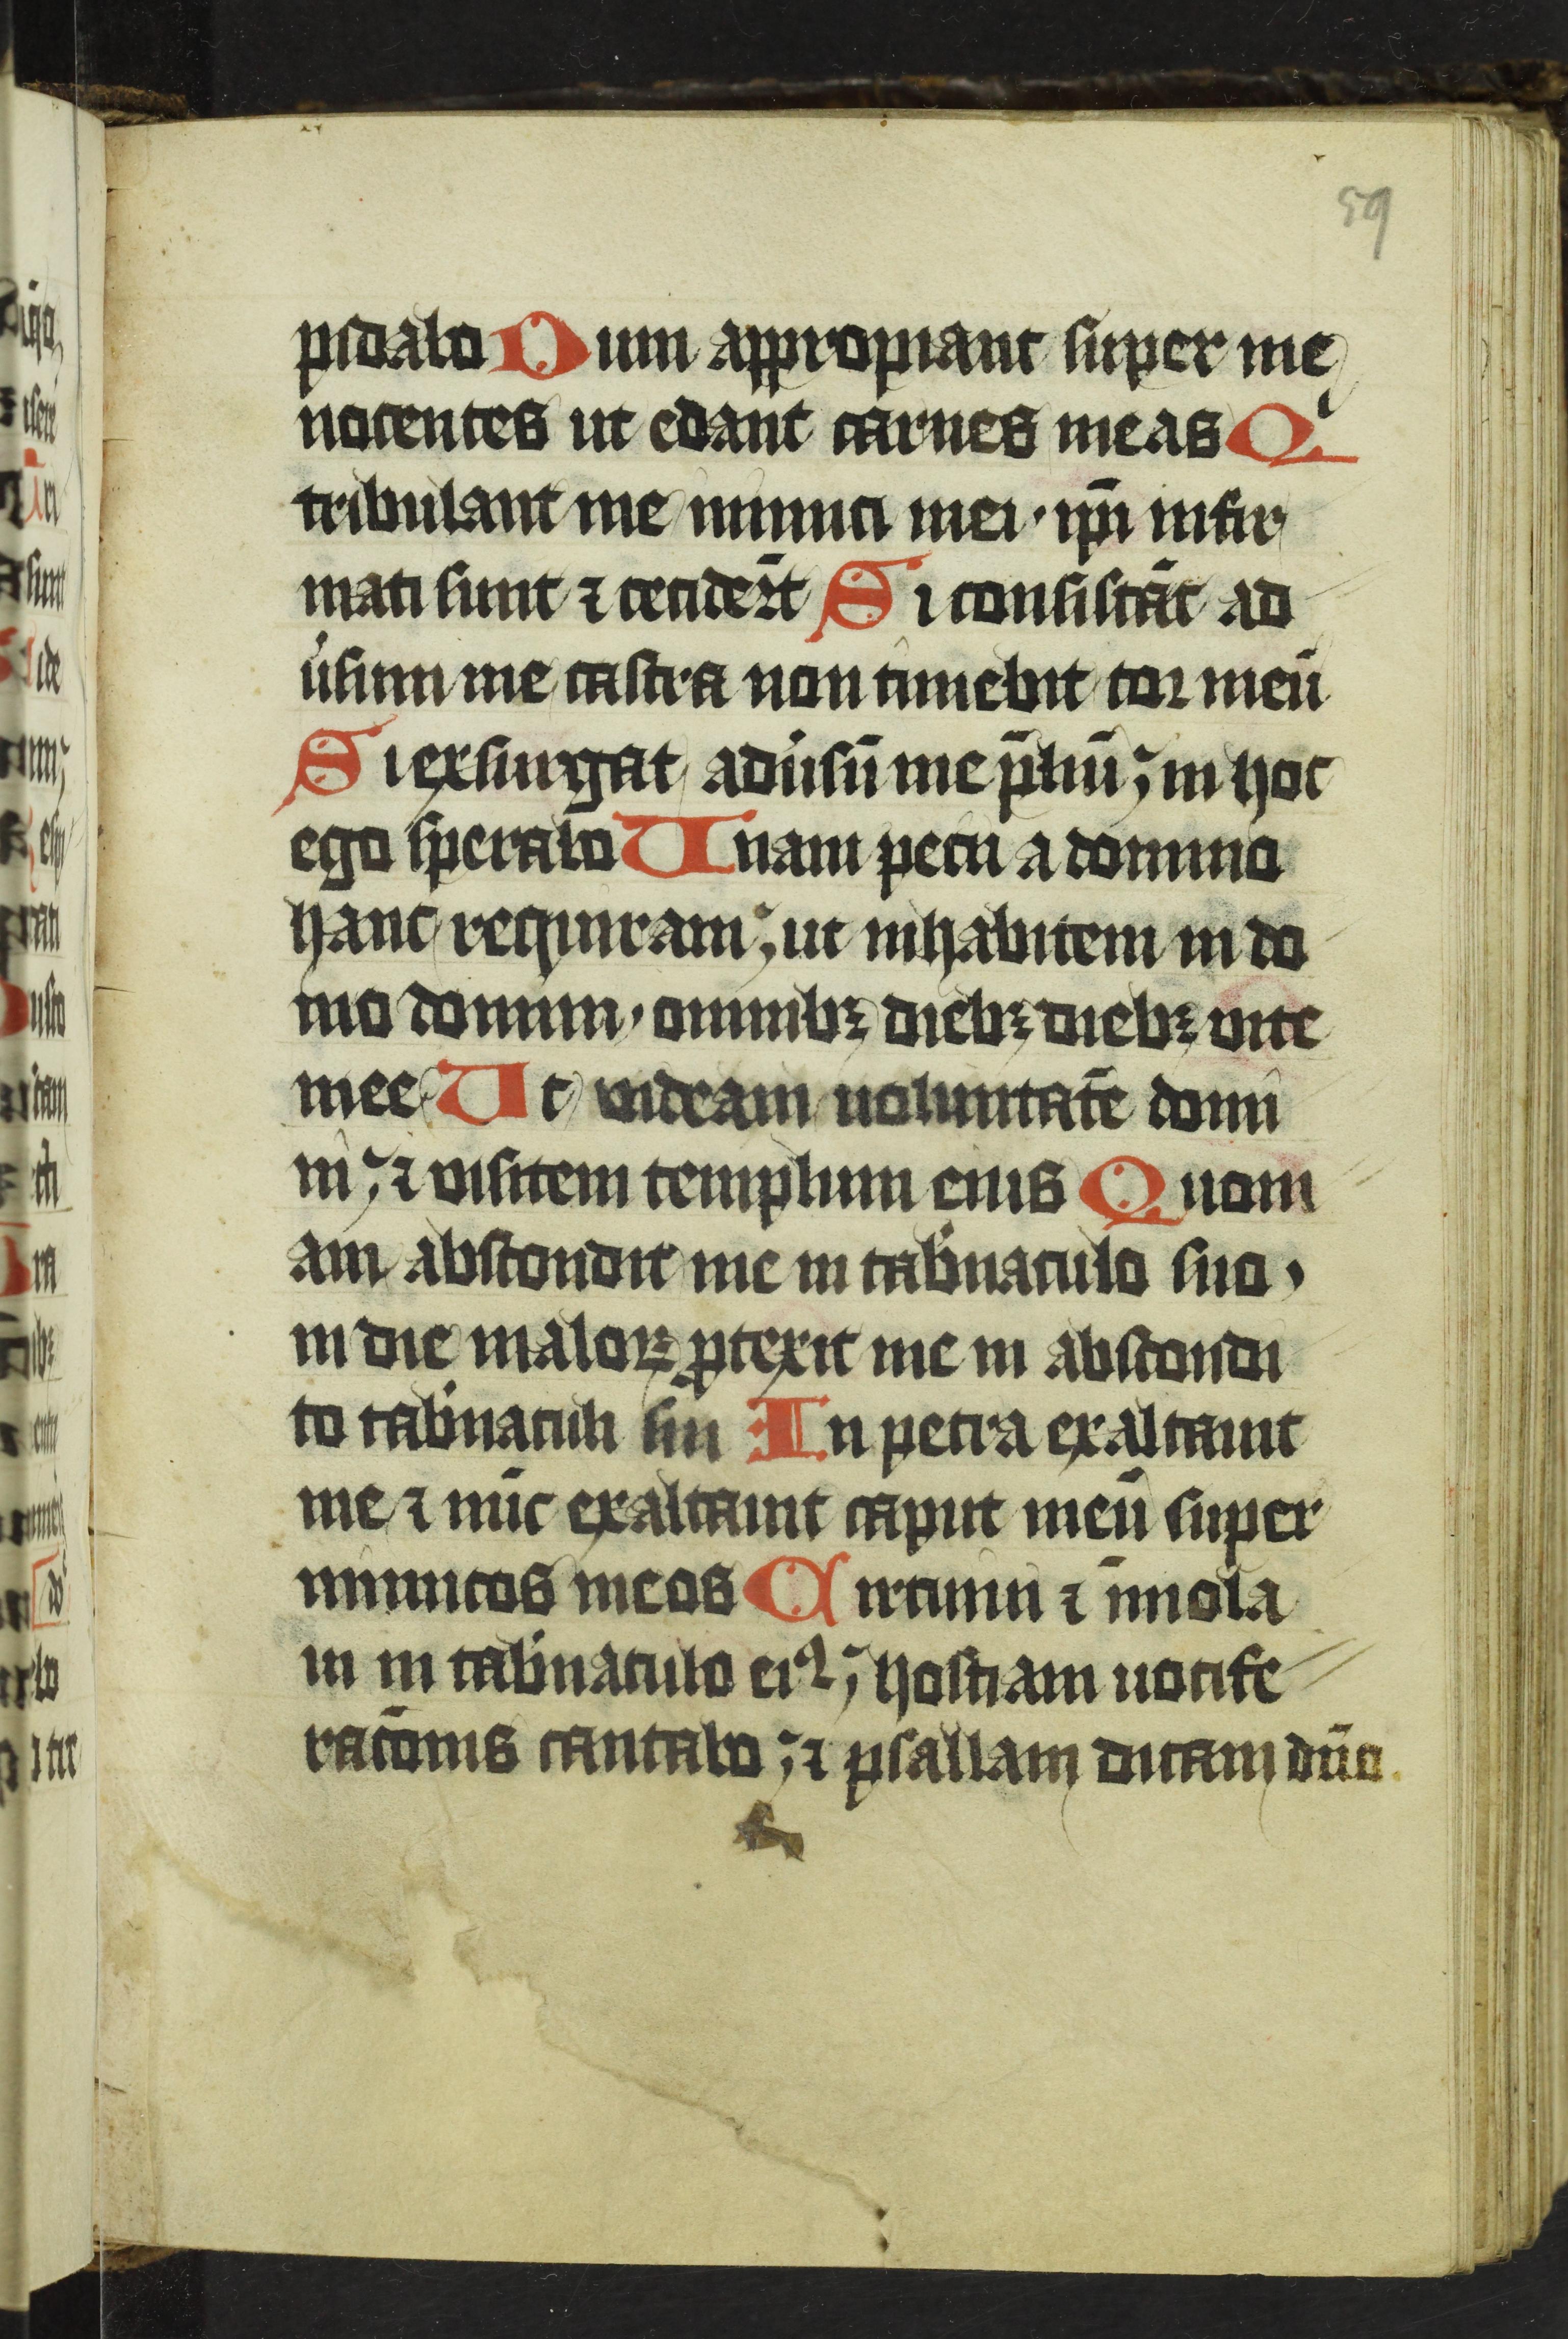 59
pidabo Dum appropiant super me
nocentes ut edant carnes meas Qͥ
tribulant me inimici mei · ip̄i infir
mati sunt ⁊ cecider̄t Si consistāt ad
u̓sum me castra non timebit cor meū
Si exsurgat adu̓sū me p̄liū ; in hoc
ego sperabo Unam pecii a domino
hanc requiram ; ut inhabitem in do
mo domini · omnibꝫ diebꝫ diebꝫ uite
mee Ut uideam uoluntatē domi
ni ; ⁊ uisitem templum eius Quoni
am abscondit me in tab̓naculo suo ·
in die maloꝝ ꝓtexit me in abscondi
to tab̓naculi sui In petra exaltauit
me ⁊ nūc exaltauit caput meū super
inimicos meos Circuiui ⁊ īmola
ui in tab̓naculo eiꝰ ; hostiam uocife
rac̄onis cantabo ; ⁊ psallam dicam dn̄o